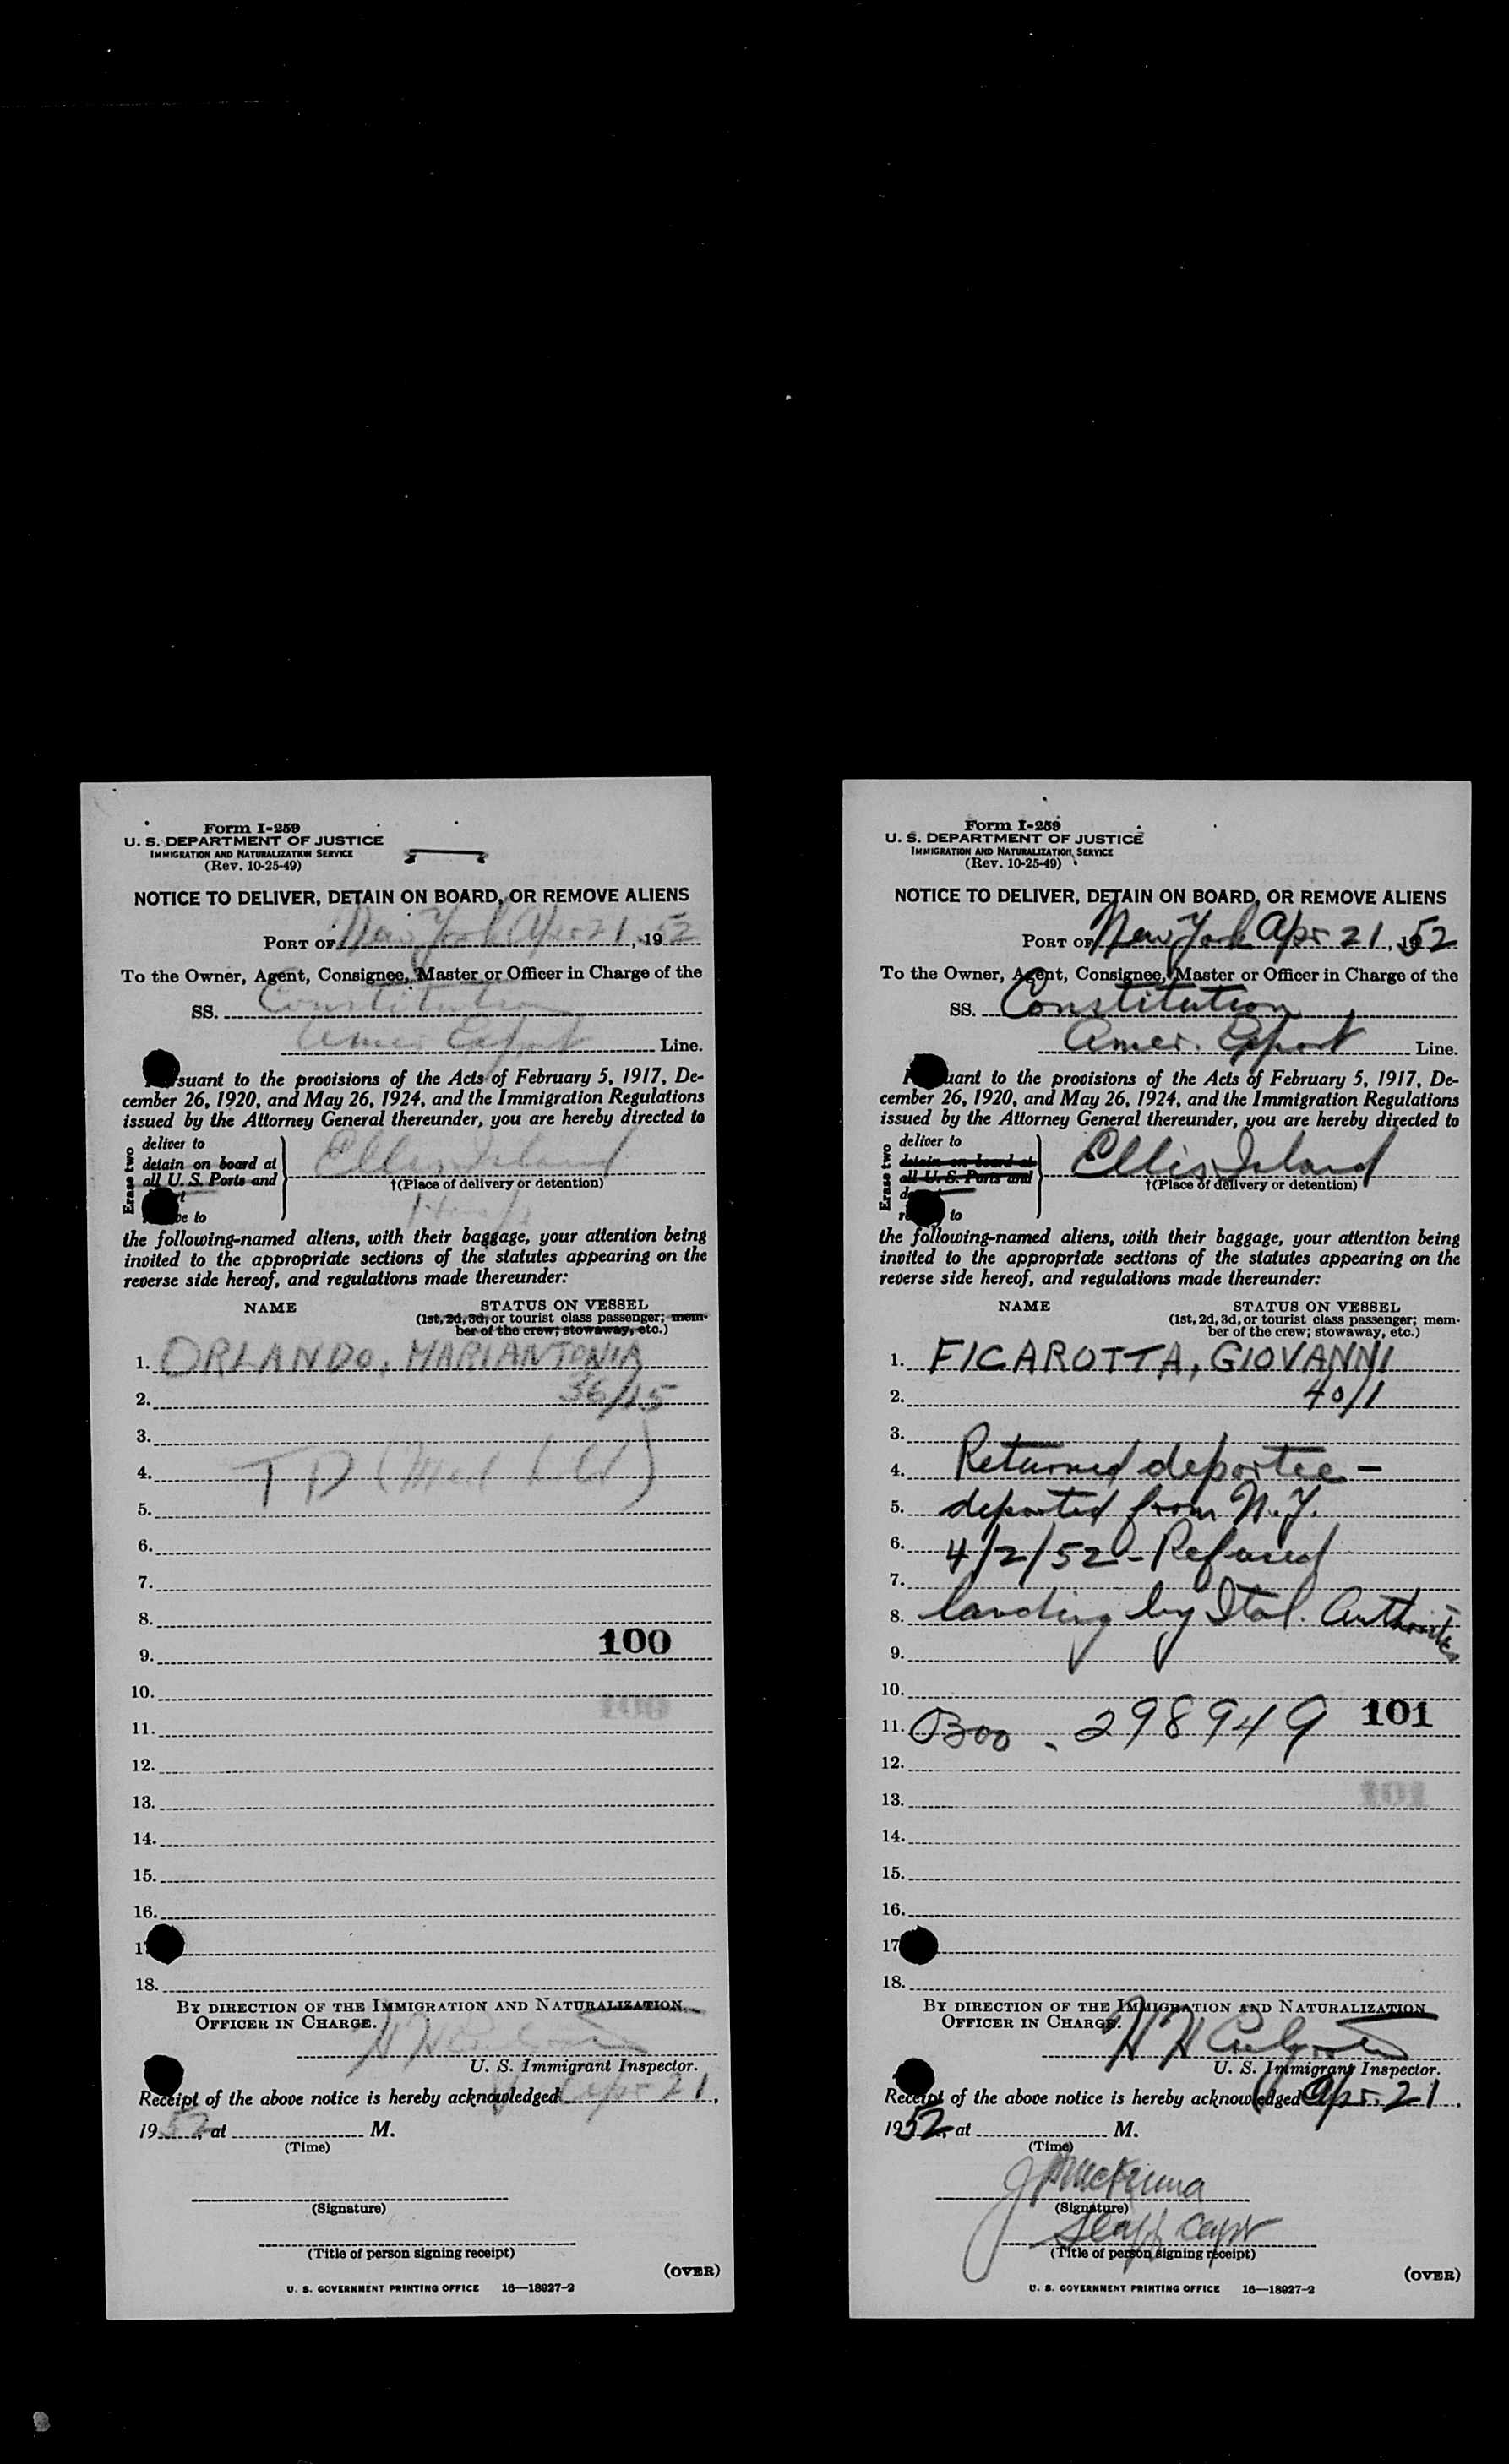 Form I-259
U. S. DEPARTMENT OF JUSTICE
IMMIGRATION AND NATURALIZATION SERVICE
(Rev. 10-25-49)
NOTICE TO DELIVER, DETAIN ON BOARD, OR REMOVE ALIENS
PORT OF New York Apr 21, 1952
To the Owner, Agent, Consignee, Master or Officer in Charge of the
SS. Constitution
Amer. Export Line.
suant to the provisions of the Acts of February 5, 1917, De-
cember 26, 1920, and May 26, 1924, and the Immigration Regulations
issued by the Attorney General thereunder, you are hereby directed to
Erase two
deliver to
detain on board at
all U. S. Ports and
Ellis Island
†(Place of delivery or detention)
to
the following-named aliens, with their baggage, your attention being
invited to the appropriate sections of the statutes appearing on the
reverse side hereof, and regulations made thereunder:
NAME STATUS ON VESSEL
(1st, 2d, 3d, or tourist class passenger; mem-
ber of the crew; stowaway, etc.)
1. ORLANDO, MARIANTONIA
2. 36/15
3.
4. TD (Med hold)
5.
6.
7.
8.
100
9.
10.
100
11.
12.
13.
14.
15.
16.
17
18.
BY DIRECTION OF THE IMMIGRATION AND NATURALIZATION
OFFICER IN CHARGE.
U. S. Immigrant Inspector.
Receipt of the above notice is hereby acknowledged Apr 21,
1952, at M.
(Time)
(Signature)
(Title of person signing receipt)
(OVER)
U. S. GOVERNMENT PRINTING OFFICE 16—18927-2
Form I-259
U. S. DEPARTMENT OF JUSTICE
IMMIGRATION AND NATURALIZATION SERVICE
(Rev. 10-25-49)
NOTICE TO DELIVER, DETAIN ON BOARD, OR REMOVE ALIENS
PORT OF New York Apr 21, 1952
To the Owner, Agent, Consignee, Master or Officer in Charge of the
SS. Constitution
Amer. Export Line.
uant to the provisions of the Acts of February 5, 1917, De-
cember 26, 1920, and May 26, 1924, and the Immigration Regulations
issued by the Attorney General thereunder, you are hereby directed to
Erase two
deliver to
detain on board at
all U. S. Ports and
Ellis Island
†(Place of delivery or detention)
to
the following-named aliens, with their baggage, your attention being
invited to the appropriate sections of the statutes appearing on the
reverse side hereof, and regulations made thereunder:
NAME STATUS ON VESSEL
(1st, 2d, 3d, or tourist class passenger; mem-
ber of the crew; stowaway, etc.)
1. FICAROTTA, GIOVANNI
2. 40/1
3.
4. Returned deportee -
5. deported from N.Y.
6. 4/2/52 - Refused
7.
8. landing by Ital. Authorities
9.
10.
11. 298949 101
12.
13. 101
14.
15.
16.
17
18.
BY DIRECTION OF THE IMMIGRATION AND NATURALIZATION
OFFICER IN CHARGE.
U. S. Immigrant Inspector.
Receipt of the above notice is hereby acknowledged Apr. 21,
1952, at M.
(Time)
McKenna
(Signature)
Staff Capt
(Title of person signing receipt)
(OVER)
U. S. GOVERNMENT PRINTING OFFICE 16—18927-2